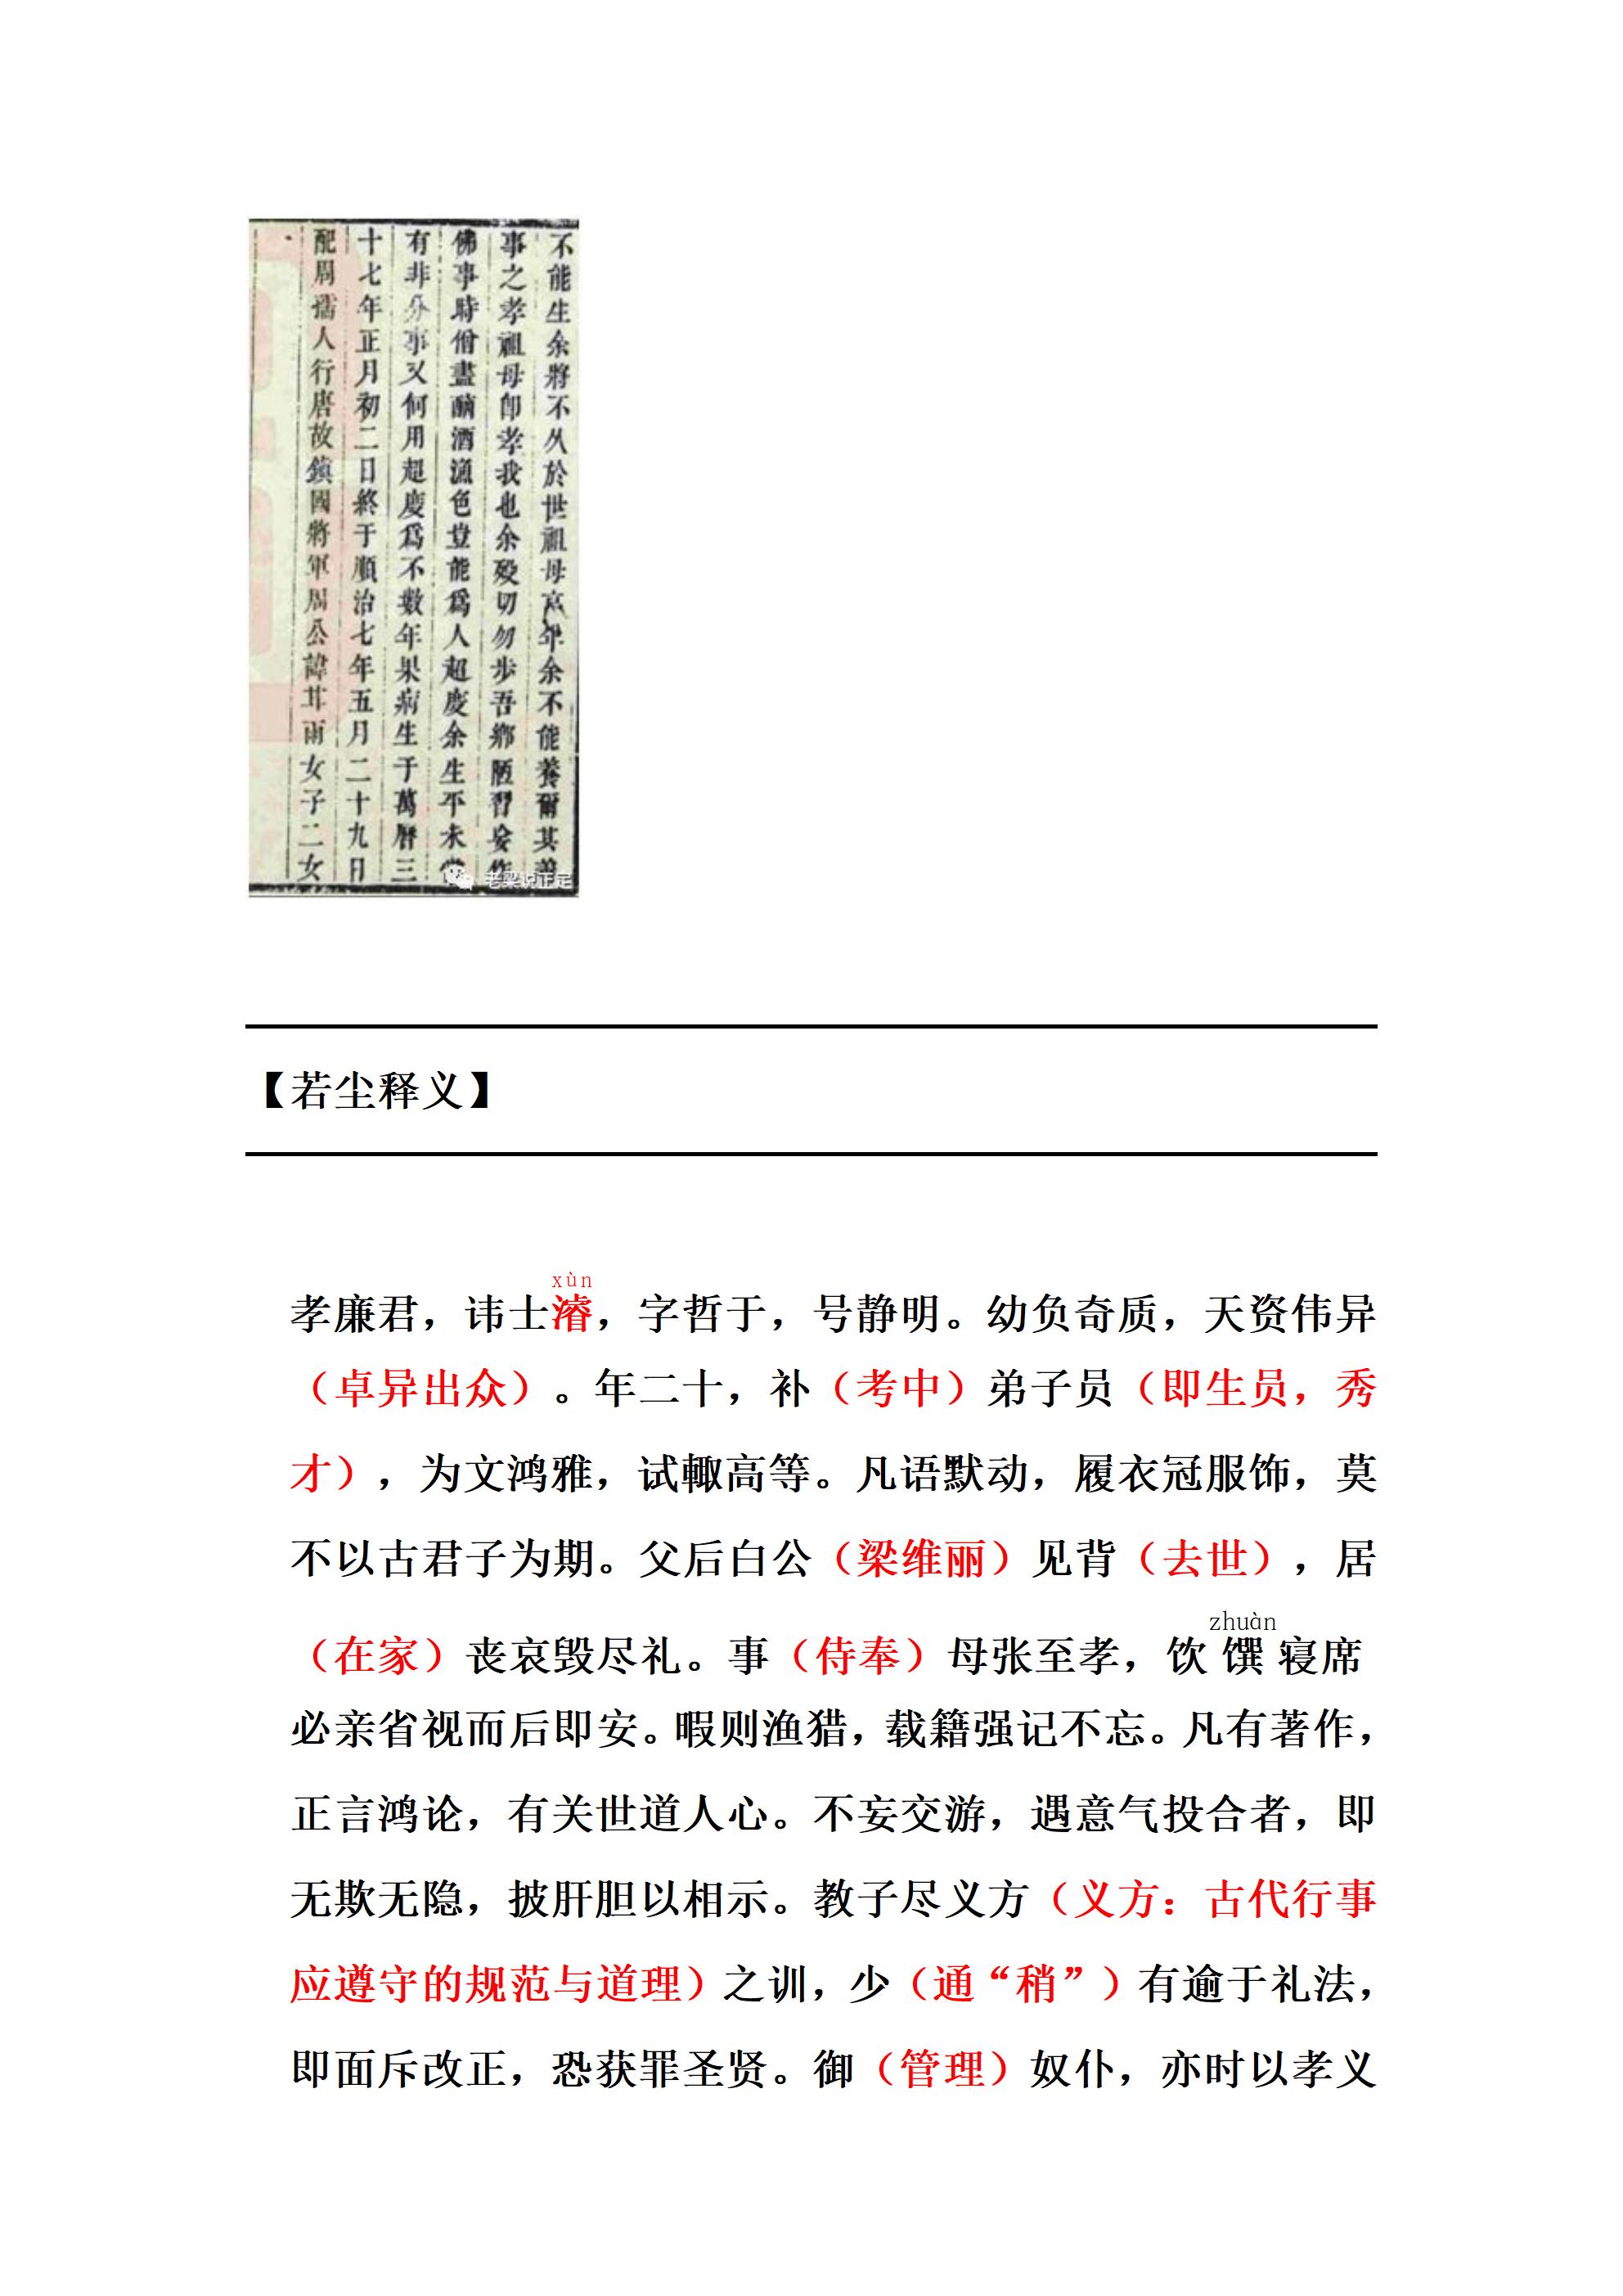 不能生余將不久於世祖母高年余不能養爾其善
事之孝祖母卽孝我也余歿切勿步吾鄉陋習妄作
佛事時僧盡酗酒漁色豈能爲人超度余生平未嘗
有非分事又何用超度爲不數年果病生于萬曆三
十七年正月初二日終于順治七年五月二十九日
配周孺人行唐故鎮國將軍周公諱其雨女子二女
老梁说正定
【若尘释义】
xùn
孝廉君，讳士濬，字哲于，号静明。幼负奇质，天资伟异
（卓异出众）。年二十，补（考中）弟子员（即生员，秀
才），为文鸿雅，试輙高等。凡语默动，履衣冠服饰，莫
不以古君子为期。父后白公（梁维丽）见背（去世），居
zhuàn
（在家）丧哀毁尽礼。事（侍奉）母张至孝，饮馔寝席
必亲省视而后即安。暇则渔猎，载籍强记不忘。凡有著作，
正言鸿论，有关世道人心。不妄交游，遇意气投合者，即
无欺无隐，披肝胆以相示。教子尽义方（义方：古代行事
应遵守的规范与道理）之训，少（通“稍”）有逾于礼法，
即面斥改正，恐获罪圣贤。御（管理）奴仆，亦时以孝义